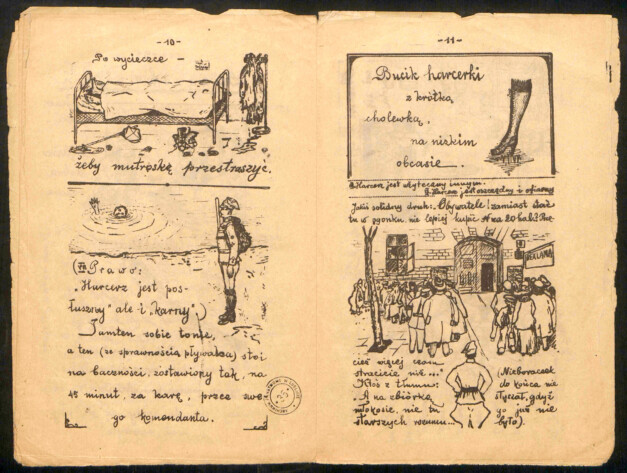 -10-
Po wycieczce -
żeby mutrąskę przestraszyć.
(VII Prawo:
"Harcerz jest pos-
łuszny" ale i "karny".)
Tamten sobie tonie,
a ten (ze sprawnością pływaka) stoi
na baczność, zostawiony tak, na
45 minut, za karę, przez swe-
go komendanta.
-11-
Bucik harcerki
z krótką
cholewką,
na nizkim
obcasie.
Harcerz jest użyteczny innym.
Harcerz jest oszczędny i ofiarny
Jakiś solidny druh: "Obywatele! zamiast stać
tu w ogonku, nie lepiej kupić
REKLAMA
cież więcej czasu
stracicie nik..."
Ktoś z tłumu:
A na zbiórkę
młokosie, nie tu
starszych rozumu...
(Nieboraczek
do końca nie
słyszał, gdyż
go już nie
było).